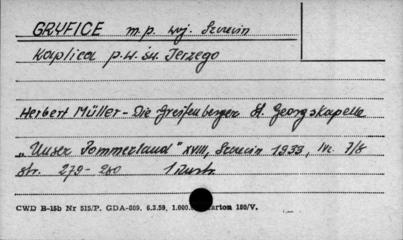 GRYFICE m.p. woj. Szczecin
Kaplica p.w. św. Jerzego
Herbert Müller - Die Greifenberger St. Georgskapelle
„Unser Pommerland" XVIII, Szczecin 1933, 7/8
str. 279-280 1 ilustr.
CWD B-15b Nr 515/P. GDA-009. 6.3.59. 1.000. Karton 180/V.